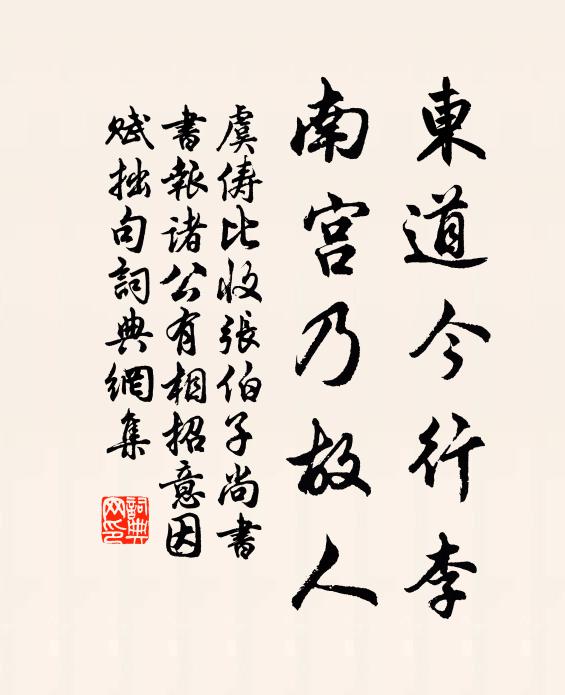 東道今行李
南宮乃故人
虞儔比收張伯子尚書
書報諸公有相招意因
賦拙句詞典網集
詞典网印